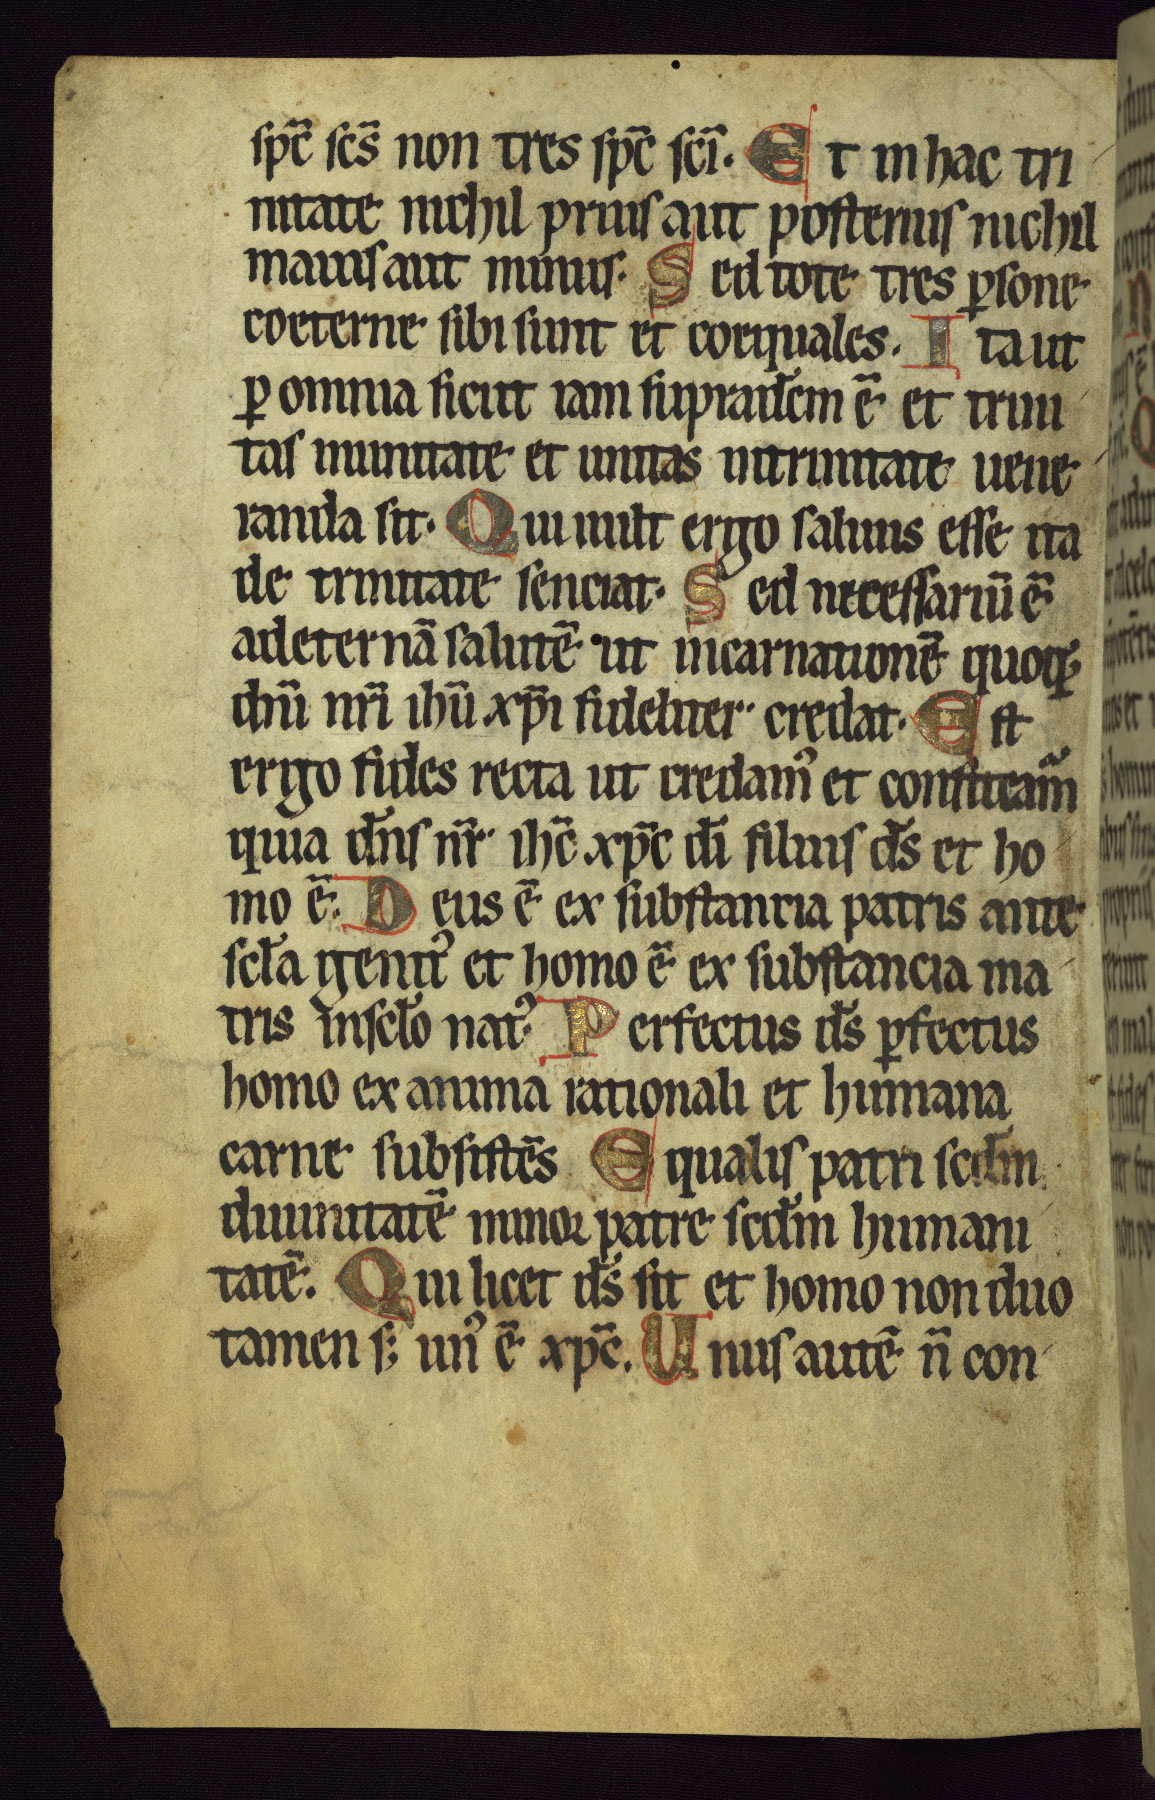 spc̄ scs̄ non tres spc̄ sci̅. Et in hac tri
nitate nichil prius aut posterius nichil
maius aut minus. Sed tote tres ꝑsone
coeterne sibi sunt et coequales. Ita ut
ꝑ omnia sicut iam supradc̄m ē et trini
tas inunitate et unitas intrinitate uene
randa sit. Qui uult ergo saluus esse ita
de trinitate senciat. Sed necessariū ē
ad eternā salutē ut incarnationē quoqꝫ
dn̄i nr̄i ihū xp̄i fideliter credat. Est
ergo fides recta ut credamꝰ et confiteam̄
quia dn̄s nr̄ ihc̄ xpc̄ dī filius ds̄ et ho
mo ē. Deus ē ex substancia patris ante
scl̄a genitꝰ et homo ē ex substancia ma
tris inscl̄o natꝰ. Perfectus ds̄ ꝑfectus
homo ex anima rationali et humana
carne subsistēs Equalis patri scdm̄
diuinitatē minor patre scdm̄ humani
tatē. Qui licet ds̄ sit et homo non duo
tamen s; unꝰ ē xpc̄. Unus autē n̄ con